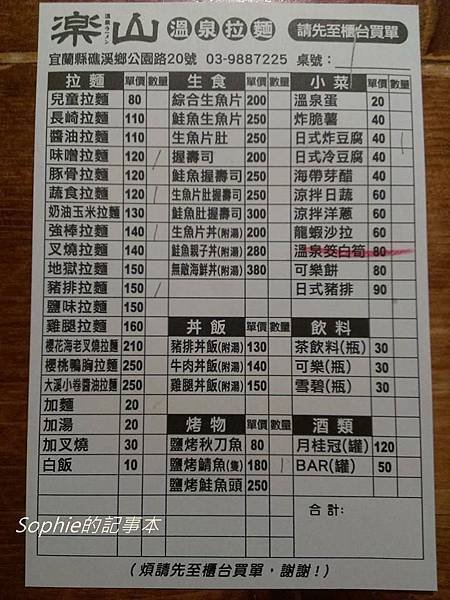 楽山 溫泉ラーメン 溫泉拉麵 請先至櫃台買單
宜蘭縣礁溪鄉公園路20號 03-9887225 桌號:
拉麵 單價 數量 生食 單價 數量 小菜 單價 數量
兒童拉麵 80 綜合生魚片 200 溫泉蛋 20
長崎拉麵 110 鮭魚生魚片 250 炸脆薯 40
醬油拉麵 110 生魚片肚 250 日式炸豆腐 40
味噌拉麵 120 握壽司 200 日式冷豆腐 40
豚骨拉麵 120 鮭魚握壽司 250 海帶芽醋 40
蔬食拉麵 120 生魚片肚握壽司 250 涼拌日蔬 60
奶油玉米拉麵 130 鮭魚肚握壽司 300 涼拌洋蔥 60
強棒拉麵 140 生魚片丼(附湯) 250 龍蝦沙拉 60
叉燒拉麵 140 鮭魚親子丼(附湯) 280 溫泉筊白筍 80
地獄拉麵 150 無敵海鮮丼(附湯) 380 可樂餅 80
豬排拉麵 150 日式豬排 90
鹽味拉麵 150
雞腿拉麵 160 丼飯 單價 數量 飲料 單價 數量
櫻花海老叉燒拉麵 210 豬排丼飯(附湯) 130 茶飲料(瓶) 30
櫻桃鴨胸拉麵 250 牛肉丼飯(附湯) 140 可樂(瓶) 30
大溪小卷醬油拉麵 250 雞腿丼飯(附湯) 150 雪碧(瓶) 30
加麵 20
加湯 20 烤物 單價 數量 酒類 單價 數量
加叉燒 30 鹽烤秋刀魚 80 月桂冠(罐) 120
白飯 10 鹽烤鯖魚(隻) 180 BAR(罐) 50
鹽烤鮭魚頭 250
合計:
Sophie的記事本
(煩請先至櫃台買單,謝謝!)